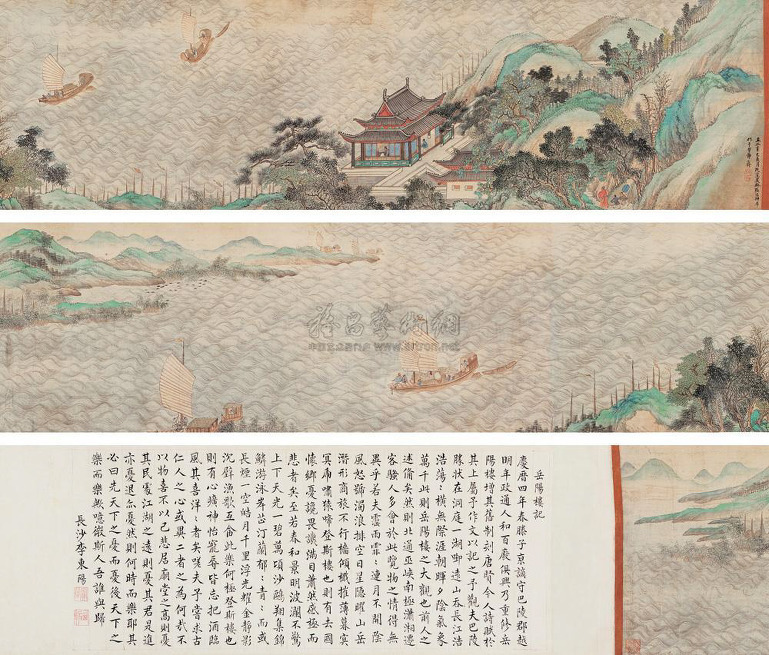 雅昌藝術網
www.artron.net
岳陽樓記
慶曆四年春滕子京謫守巴陵郡越
明年政通人和百廢俱興乃重修岳
陽樓增其舊制刻唐賢今人詩賦於
其上屬予作文以記之予觀夫巴陵
勝狀在洞庭一湖銜遠山吞長江浩
浩蕩:橫無際涯朝暉夕陰氣象
萬千此則岳陽樓之大觀也前人之
述備矣然則北通巫峽南極瀟湘遷
客騷人多會於此覽物之情得無
異乎若夫霪雨霏:連月不開陰
風怒號濁浪排空日星隱曜山岳
潛形商旅不行檣傾楫摧薄暮冥
冥虎嘯猿啼登斯樓也則有去國
懷鄉憂讒畏譏滿目蕭然感極而
悲者矣至若春和景明波瀾不驚
上下天光一碧萬頃沙鷗翔集錦
鱗游泳岸芷汀蘭郁:青:而或
長煙一空皓月千里浮光耀金靜影
沉璧漁歌互答此樂何極登斯樓也
則有心曠神怡寵辱皆忘把酒臨
風其喜洋:者矣嗟夫予嘗求古
仁人之心或異二者之為何哉不
以物喜不以己悲居廟堂之高則憂
其民處江湖之遠則憂其君是進
亦憂退亦憂然則何時而樂耶其
必曰先天下之憂而憂後天下之
樂而樂歟噫微斯人吾誰與歸
長沙李東陽